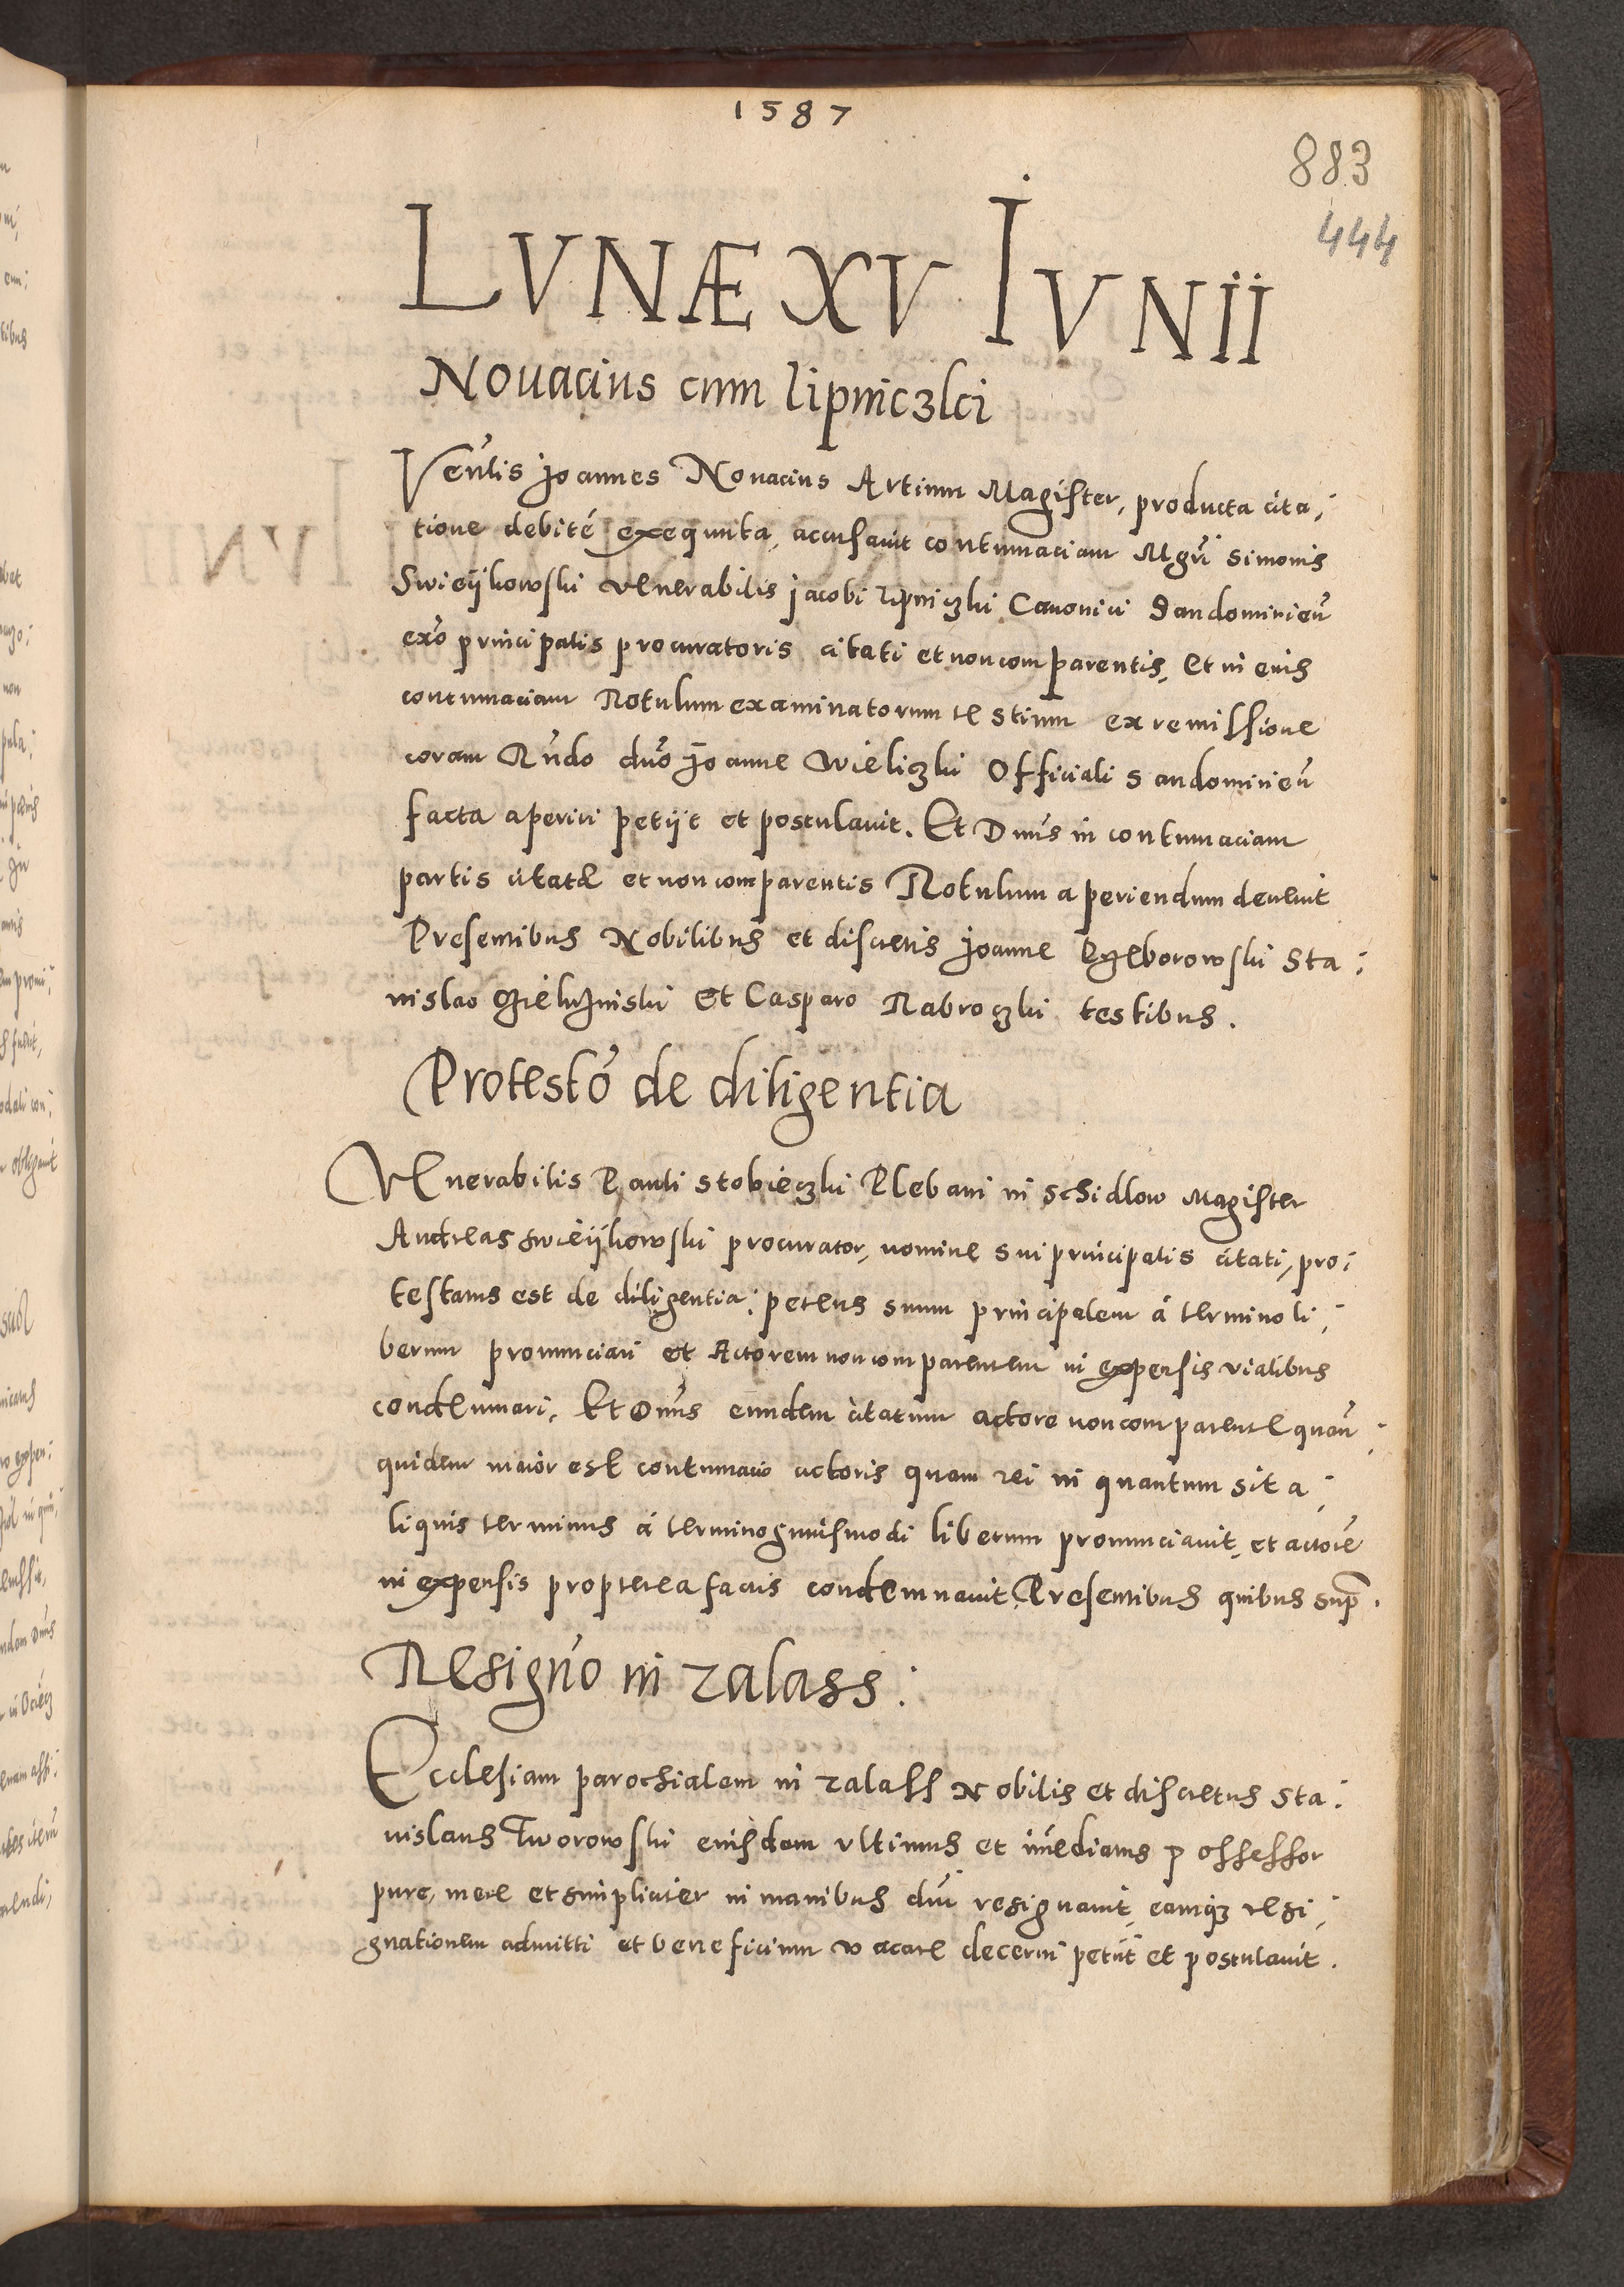 1587
883
444
LVNÆ XV IVNII
Nouacius cum lipniczki
Ven̄lis Joannes Nouacius Artium Magister, producta cita;
tione debité exequuta, accusauit contumaciam Mgr̄i Simonis
Swieÿkowski venerabilis Jacobi Lipniczki Canonici Sandomirien̄
exō principalis procuratoris citati et non comparentis, Et in eius
contumaciam Rotulum examinatorum testium ex remissione
coram Rn̄do dn̄o Joanne Wieliczki Officiali Sandomirien̄
facta aperiri petijt et postulauit. Et Dn̄us in contumaciam
partis citatæ et non comparentis Rotulum aperiendum decreuit
Presentibus Nobilibus et discretis Joanne Sta;
nislao et Casparo Nabroczki testibus.
Protestō de diligentia
Venerabilis Pauli Stobieczki Plebani in Schidlow Magister
Andreas Swieÿkowski procurator, nomine sui principalis citati, pro;
testatus est de diligentia: petens suum principalem á termino li;
berum pronunciari et Actorem non comparentem in expensis vialibus
condemnari, Et Dn̄us eundem citatum actore non comparente quan̄;
quidem maior est contumacio actoris quam rei in quantum sit a;
liquis terminus á termino huiusmodi liberum pronunciauit, et actorē
in expensis propterea factis condemnauit, Presentibus quibus sup̄.
Resignō in Zalass:
Ecclesiam parochialem in Zalass Nobilis et discretus Sta;
nislaus Tworowski eiusdem vltimus et im̄ediatus possessor
pure, mere et simpliciter in manibus dn̄i resignauit, eamq₃ resi;
gnationem admitti et beneficium vacare decerni petiit et postulauit.